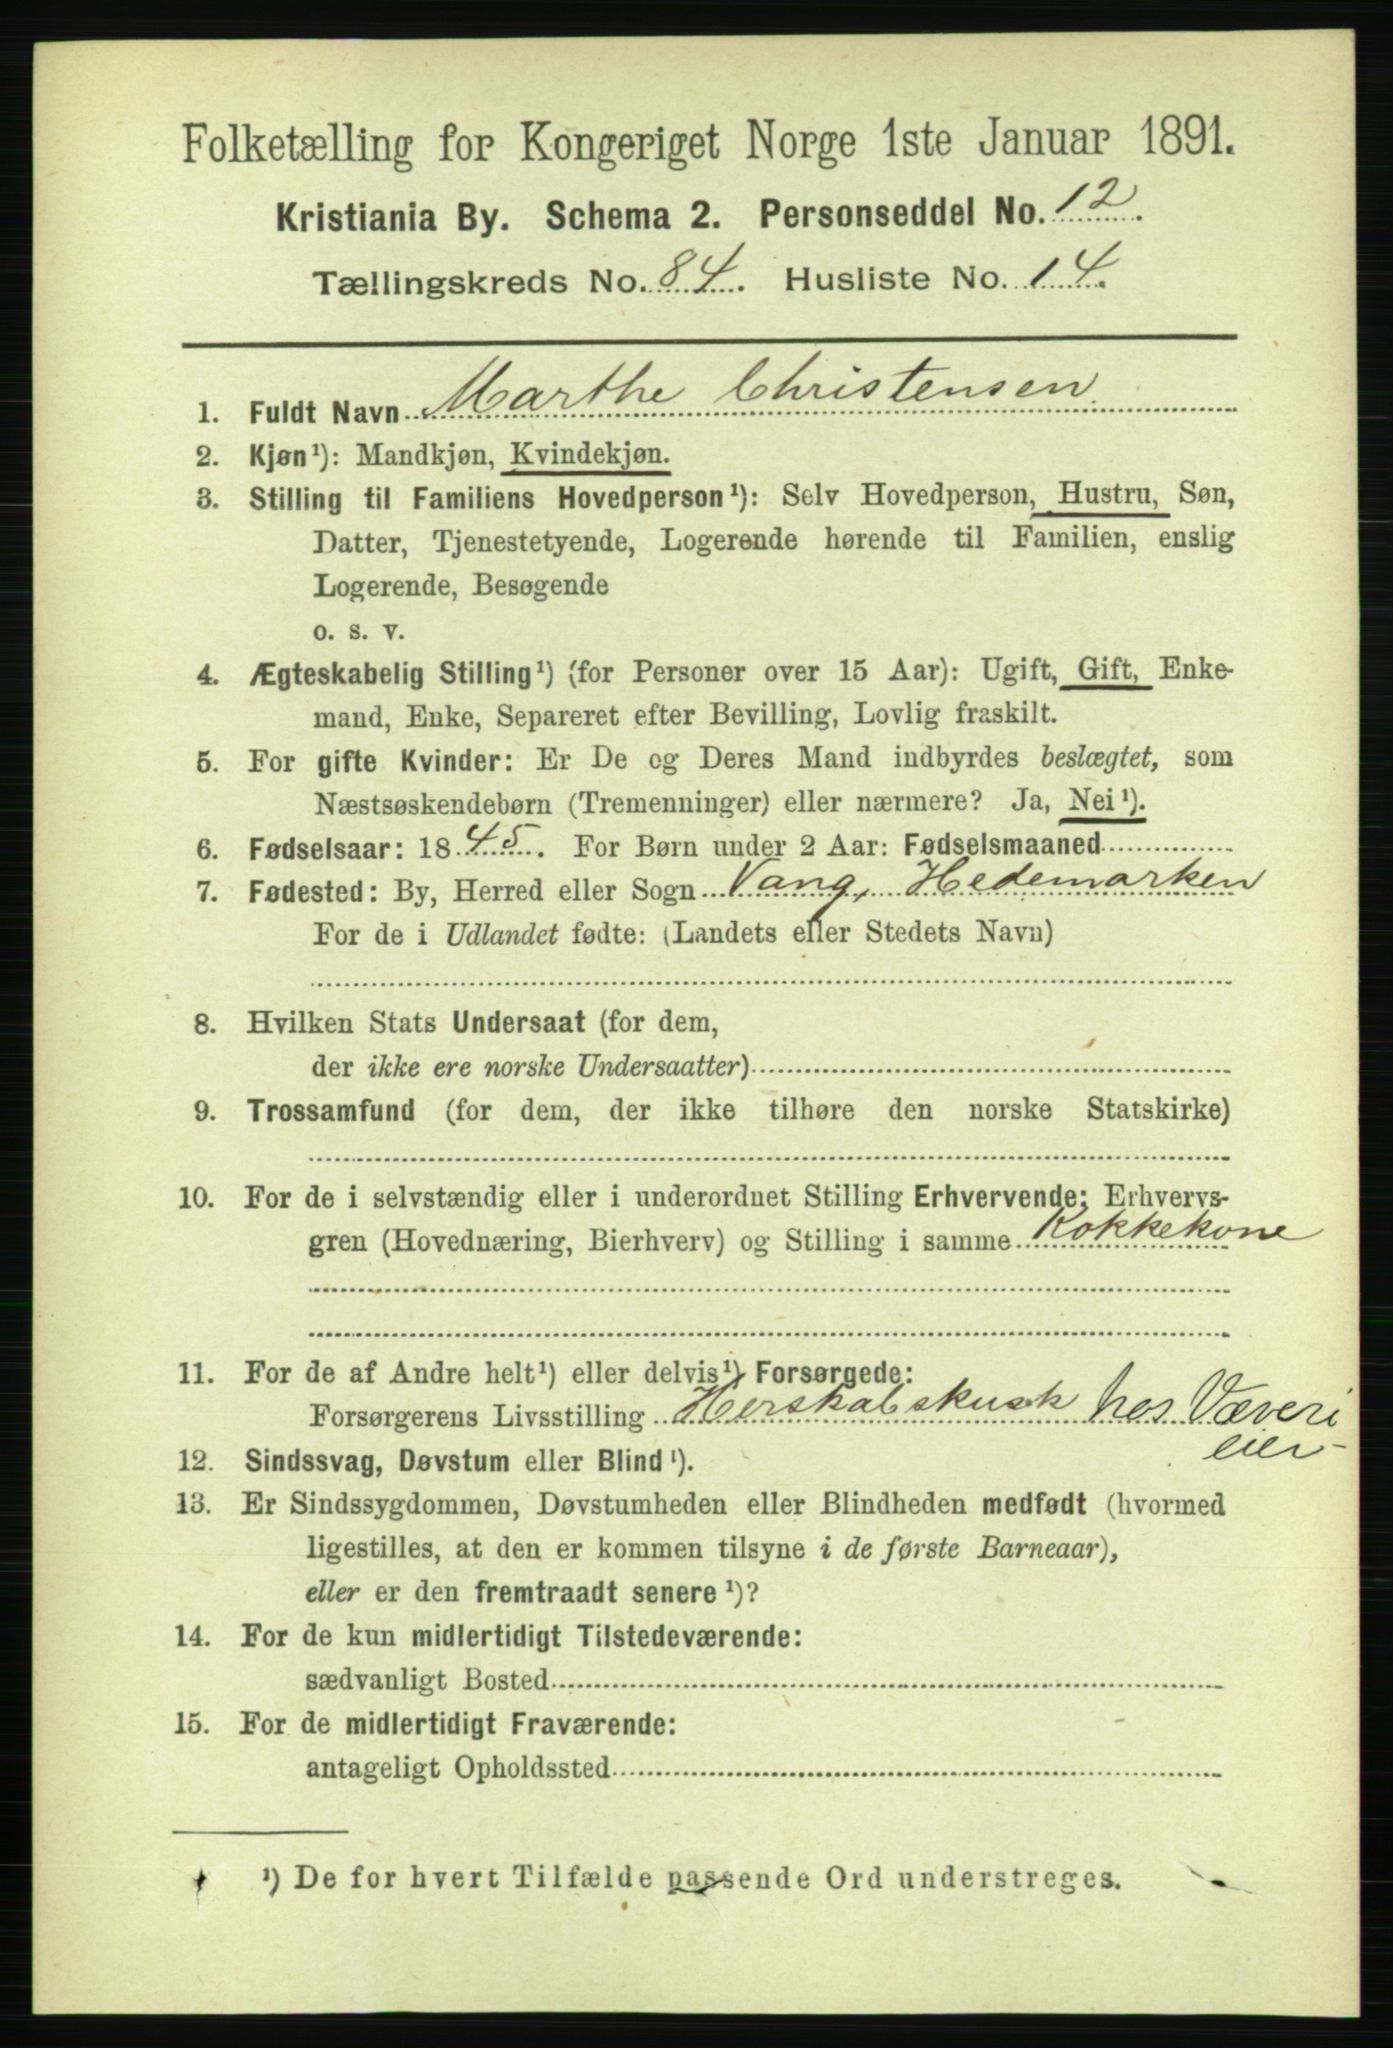 Folketælling for Kongeriget Norge 1ste Januar 1891.
Kristiania By. Schema 2. Personseddel No. 12.
Tællingskreds No. 84. Husliste No. 14.
1. Fuldt Navn Marthe Christensen
2. Kjøn¹): Mandkjøn, Kvindekjøn.
3. Stilling til Familiens Hovedperson¹): Selv Hovedperson, Hustru, Søn,
Datter, Tjenestetyende, Logerende hørende til Familien, enslig
Logerende, Besøgende
o. s. v.
4. Ægteskabelig Stilling¹) (for Personer over 15 Aar): Ugift, Gift, Enke-
mand, Enke, Separeret efter Bevilling, Lovlig fraskilt.
5. For gifte Kvinder: Er De og Deres Mand indbyrdes beslægtet, som
Næstsøskendebørn (Tremenninger) eller nærmere? Ja, Nei¹).
6. Fødselsaar: 1845. For Børn under 2 Aar: Fødselsmaaned
7. Fødested: By, Herred eller Sogn Vang, Hedemarken
For de i Udlandet fødte: (Landets eller Stedets Navn)
8. Hvilken Stats Undersaat (for dem,
der ikke ere norske Undersaatter)
9. Trossamfund (for dem, der ikke tilhøre den norske Statskirke)
10. For de i selvstændig eller i underordnet Stilling Erhvervende: Erhvervs-
gren (Hovednæring, Bierhverv) og Stilling i samme Kokkekone
11. For de af Andre helt¹) eller delvis¹) Forsørgede:
Forsørgerens Livsstilling Herskabskusk hos Væveri
eier
12. Sindssvag, Døvstum eller Blind¹).
13. Er Sindssygdommen, Døvstumheden eller Blindheden medfødt (hvormed
ligestilles, at den er kommen tilsyne i de første Barneaar),
eller er den fremtraadt senere¹)?
14. For de kun midlertidigt Tilstedeværende:
sædvanligt Bosted
15. For de midlertidigt Fraværende:
antageligt Opholdssted
¹) De for hvert Tilfælde passende Ord understreges.